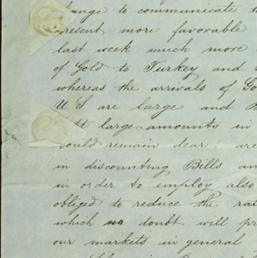 change to communicate
present more favorable
last week much more
of Gold to Turkey and
whereas the arrivals of
U.S are large and
large amounts in
could remain dear, are
in discounting Bills an
in order to employ also
obliged to reduce the rat
which no doubt will pr
our markets in general